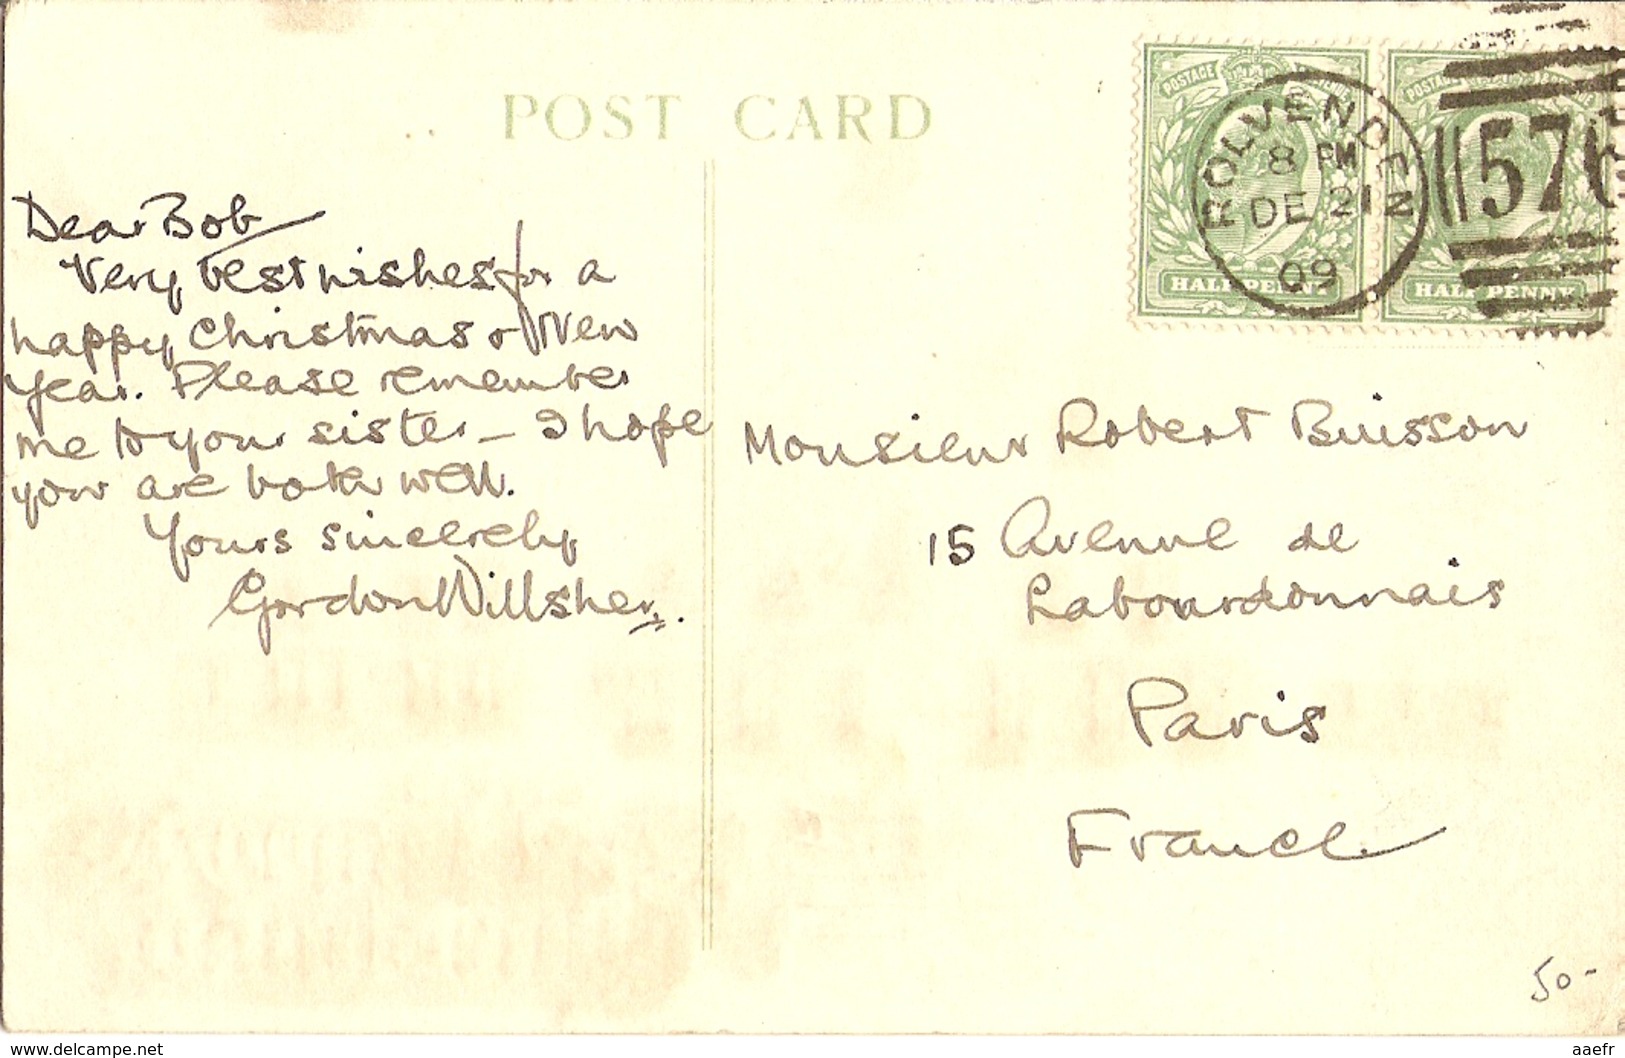 POST CARD
POSTAGE
POSTAGE
HALF PENNY
HALF PENNY
ROLVENDEN
8 PM
DE 21
09
576
Dear Bob
Very best wishes for a
happy Christmas & New
Year. Please remember
me to your sister — I hope
you are both well.
Yours sincerely
Gordon Willsher.
Monsieur Robert Buisson
15 Avenue de
Labourdonnais
Paris
France
50-
www.delcampe.net
aaefr